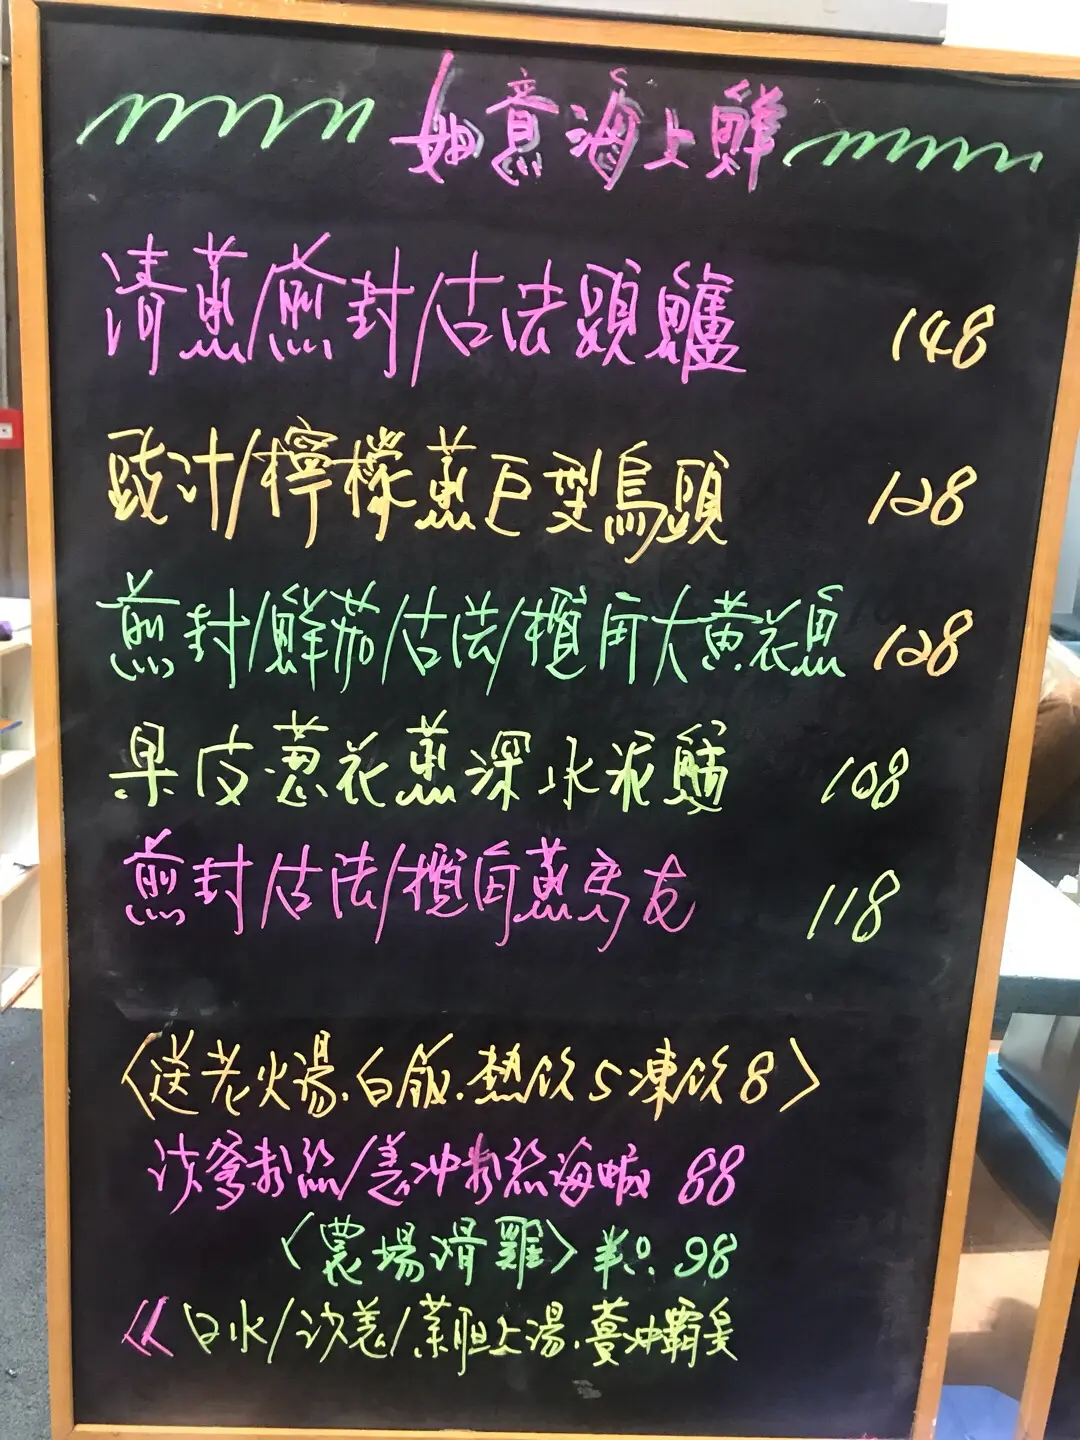 如意海上鮮
清蒸/煎封/古法頭鱸 148
豉汁/檸檬蒸巨型烏頭 128
煎封/鮮茄/古法/欖角大黃花魚 128
果皮葱花蒸深水泥鯭 108
煎封/古法/欖角蒸馬友 118
〈送老火湯.白飯.熱飲5凍飲8〉
沙爹粉絲/羗冲粉絲海蝦 88
〈農場滑雞〉半只.98
《白水/沙羗/菜胆上湯.薑冲霸皇